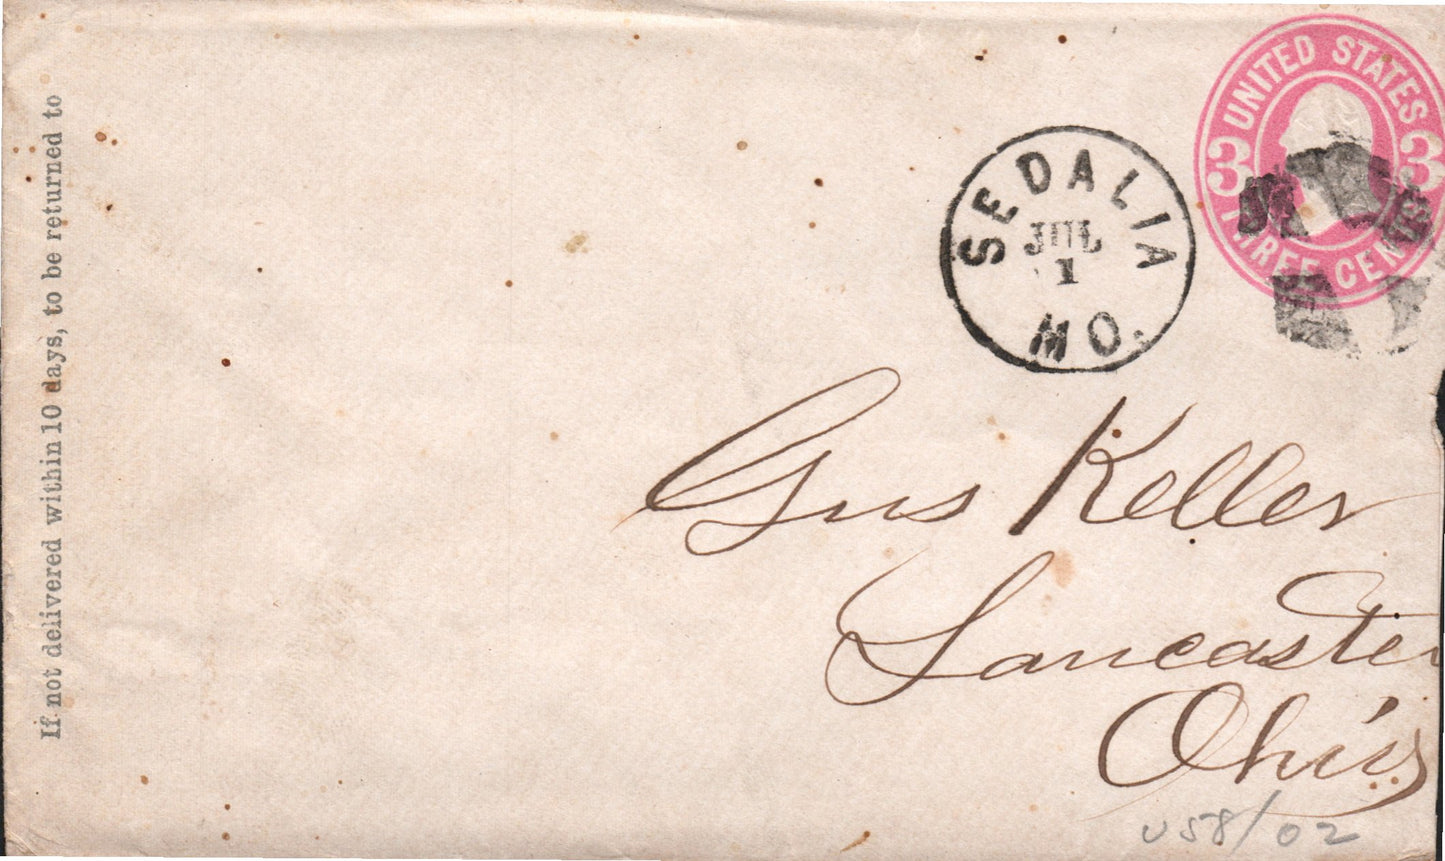 If not delivered within 10 days, to be returned to
UNITED STATES
3 3
THREE CENTS
SEDALIA
JUL
1
MO.
Gus Keller
Lancaster
Ohio
US8/02